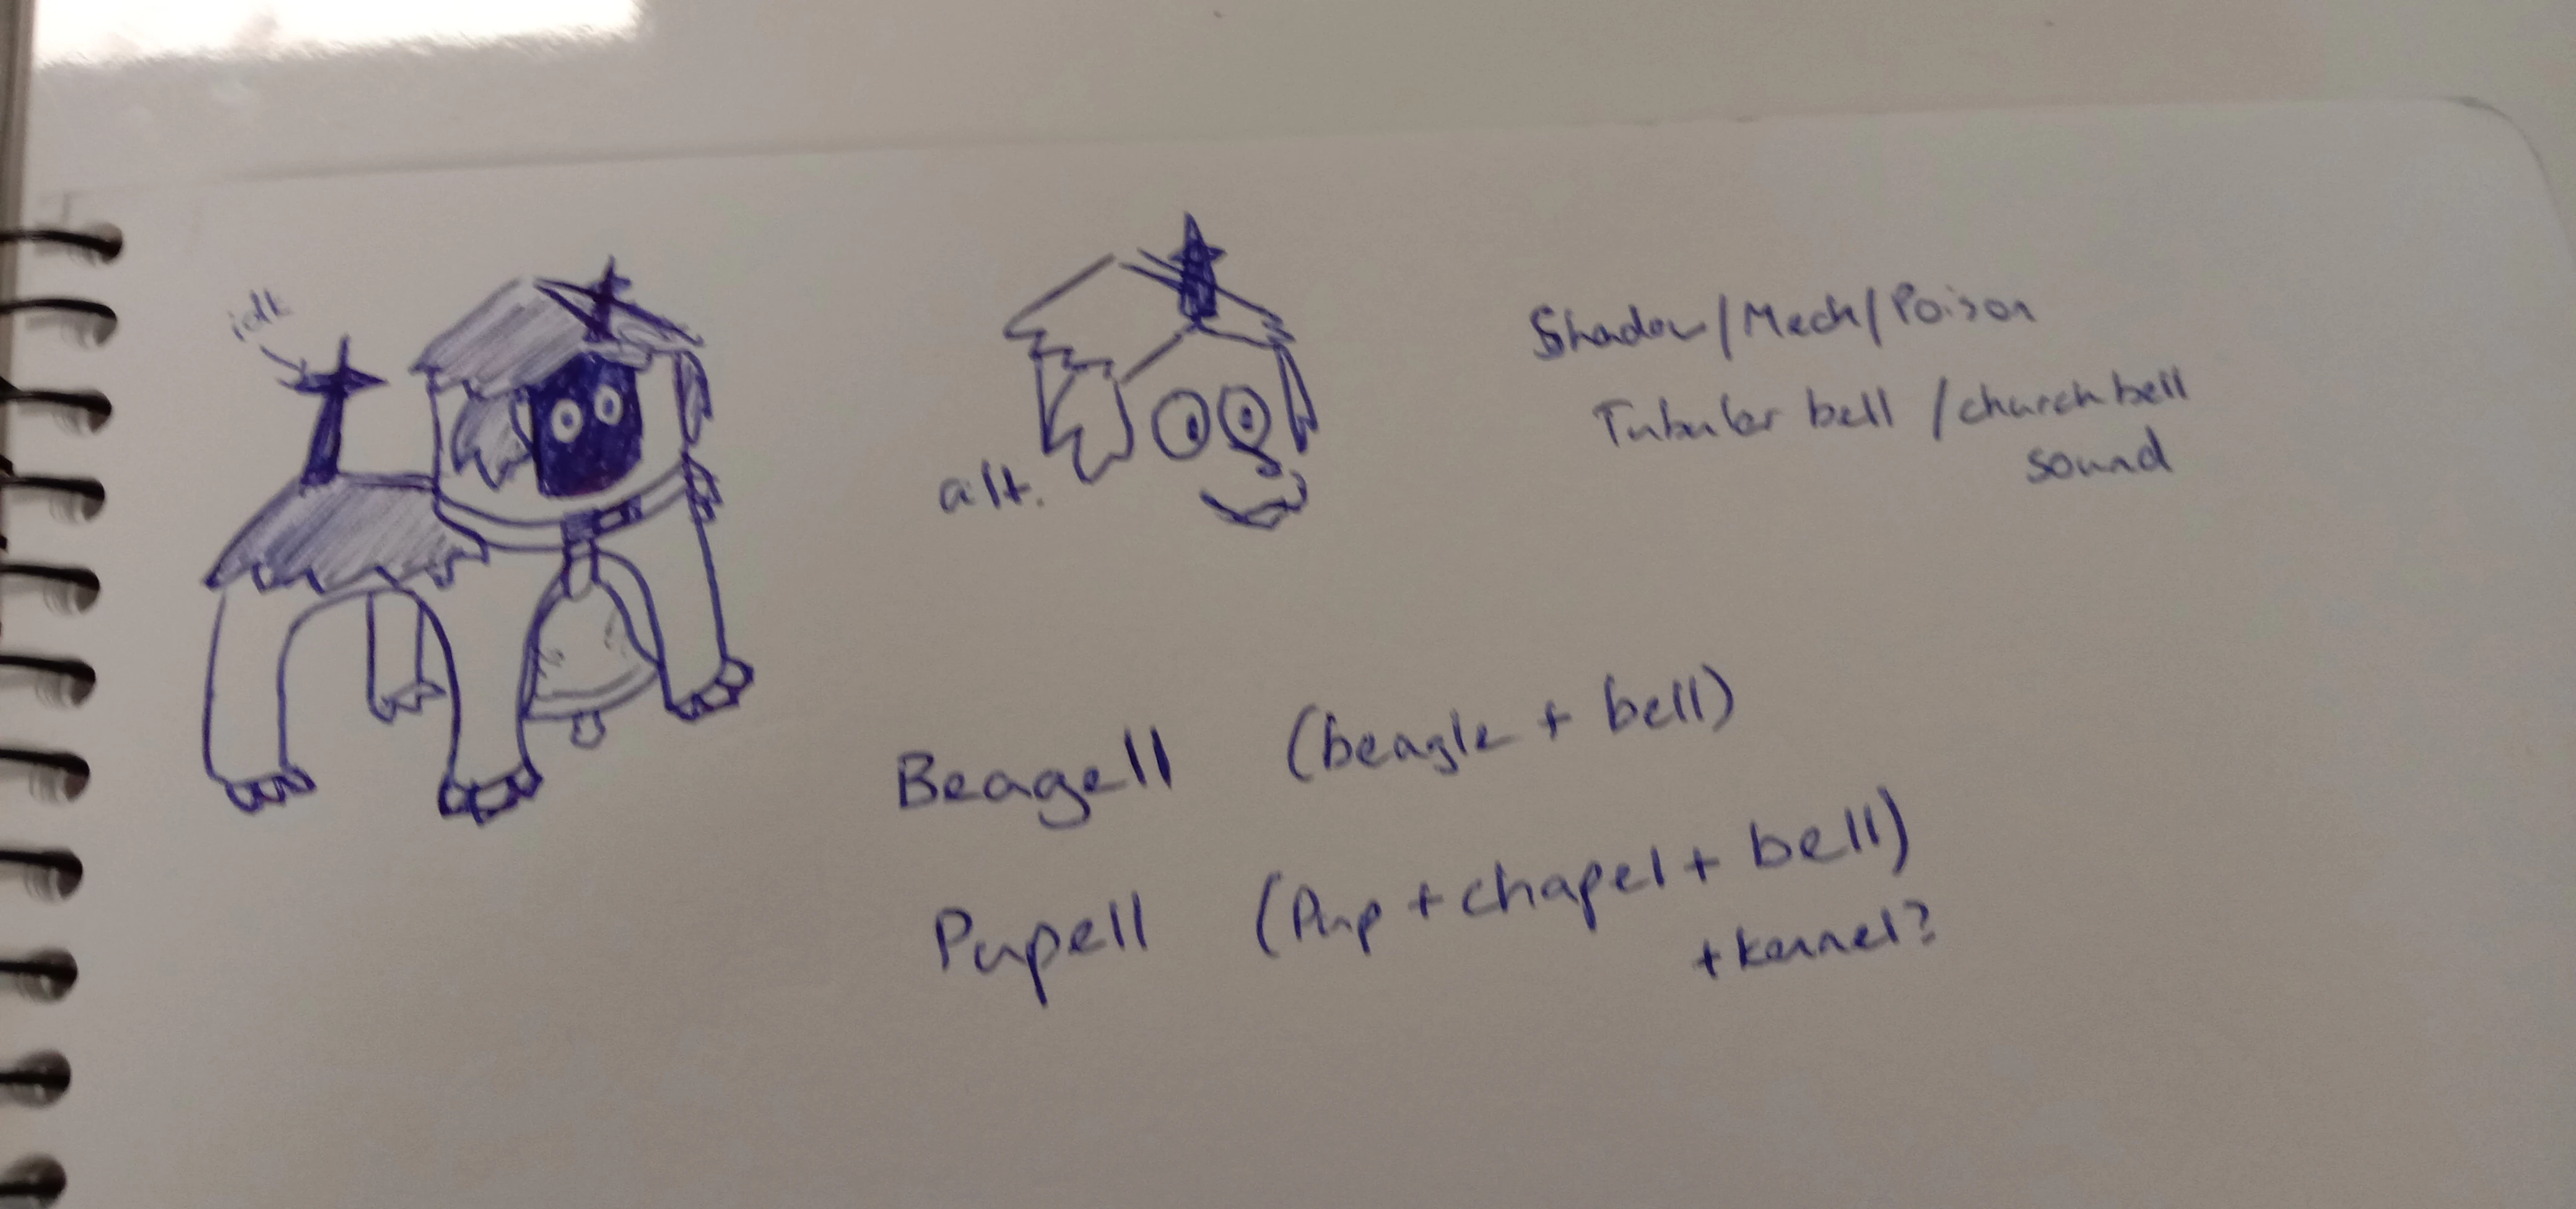 idk
alt.
Shadow/Mech/Poison
Tubular bell / church bell
sound
Beagell (beagle + bell)
Pupell (Pup + chapel + bell)
+ kennel?